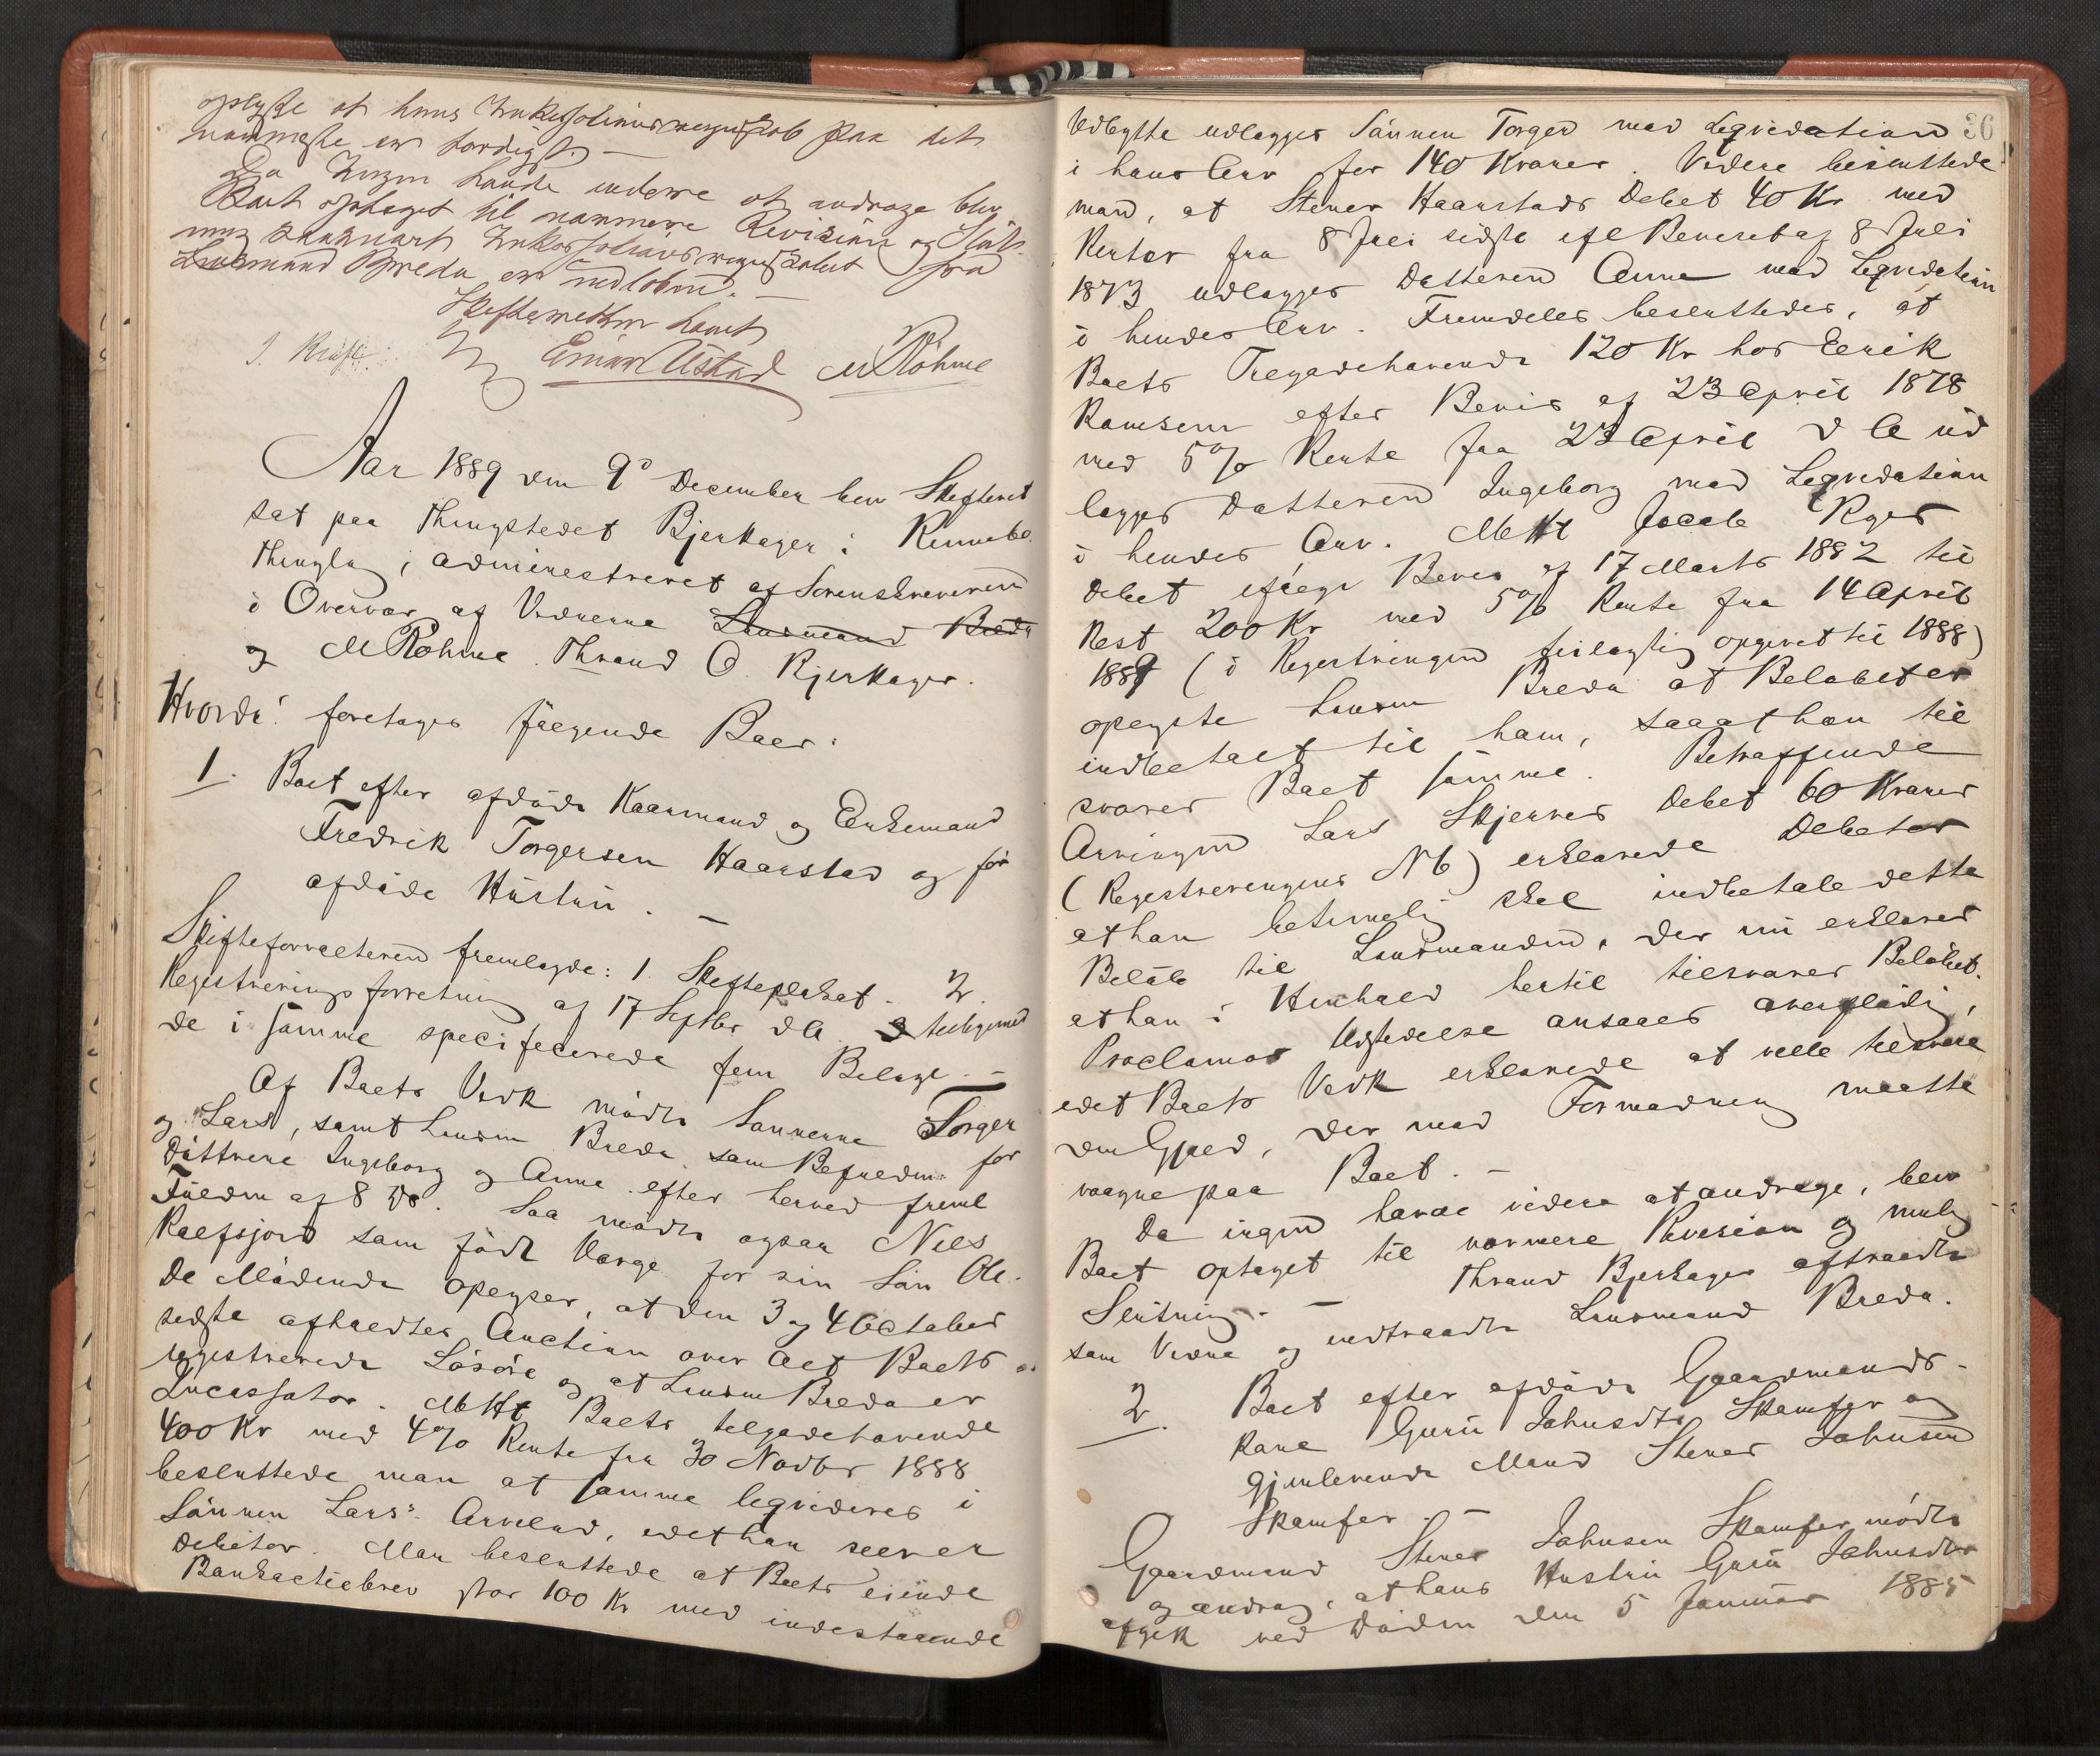 oplyste at hans Inkassationsregnskab paa det
nærmeste er færdigt. —
Da Ingen havde videre at andrage blev
Boet optaget til nærmere Revision og Slut-
ning saasnart Inkassationsregnskabet fra
Lensmand Breda er indløbet. —
Skifteretten hævet
J. Kraft Einar Ustad M Röhme
Aar 1889 den 9de December blev Skifteret
sat paa Thingstedet Bjerkager i Rennebo
Thinglag, administreret af Sorenskriveren
i Overvær af Vidnerne Lensmand Breda
og M Röhme. Thrand O. Bjerkager.
Hvorda: foretages følgende Boer:
1. Boet efter afdøde Kaarmand og Enkemand
Fredrik Torgersen Haarstad og før
afdøde Hustru. —
Skifteforvalteren fremlagde: 1. Skifteplakat. 2.
Registreringsforretning af 17 Septbr d A. tilligemed
de i samme specificerede fem Bilage. —
Af Boets Vedk mødte Sønnerne Torger
og Lars, samt Lensm Breda som Befuldm. for
Døttrene Ingeborg og Anna efter herved freml
Fuldm af 8 ds. Saa mødte ogsaa Nils
Kalfsjord som født Værge for sin Søn Ole.
De Mødende oplyser, at den 3 og 4 October
sidste afholdtes Auction over alt Boets
registrerede Løsøre og at Lensm Breda er
Incassator. M Ht Boets tilgodehavende
400 Kr med 4% Rente fra 30 Novbr 1888
besluttede man at samme liqvideres i
Sønnen Lars's Arvelod, idet han selv er
Debitor. Man besluttede at Boets eiende
Bankactiebrev stor 100 Kr med indestaaende
36
Udbytte udlægges Sønnen Torger mod Liqvidation
i hans Arv for 140 Kroner. Videre besluttede
man, at Stener Haarstads Debet 40 Kr med
Renter fra 8 Juli sidste efl Bevis af 8 Juli
1873 udlægges Datteren Anne mod Liqvidation
i hendes Arv. Fremdeles besluttedes, at
Boets Tilgodehavende 120 Kr hos Eerik
Ramsem efter Bevis af 23 April 1878
med 5% Rente fra 23 April d A ud
lægges Datteren Ingeborg mod Liqvidation
i hendes Arv. M Ht Jacob Ryes
Debet ifølge Bevis af 17 Marts 1882 til
Rest 200 Kr med 5% Rente fra 14 April
1889 (i Registreringen feilagtig opgivet til 1888)
oplyste Lensm Breda at Beløbet er
indbetalt til ham, saa at han til
svarer Boet samme. Betræffende
Arvingen Lars Skjerves Debet 60 Kroner
(Registreringens N 6) erklærede Debitor
at han betimelig skal indbetale dette
Beløb til Lensmanden, der nu erklærer
at han i Henhold hertil tilsvarer Beløbet.
Proclamas Udstedelse ansaaes overflødig,
idet Boets Vedk erklærede at ville tilsvare
den Gjæld, der mod Formodning maatte
vaagne paa Boet. —
Da ingen havde videre at andrage, blev
Boet optaget til nærmere Revision og mulig
Slutning. — Thrand Bjerkager aftraadte
som Vidne og indtraadte Lensmand Breda.
2. Boet efter afdøde Gaardmands-
kone Guru Johnsdtr Skamfer og
gjenlevende Mand Stener Johnsen
Skamfer. —
Gaardmand Stener Johnsen Skamfer mødte
og androg, at hans Hustru Guru Johnsdtr
afgik ved Døden den 5 Januar 1885